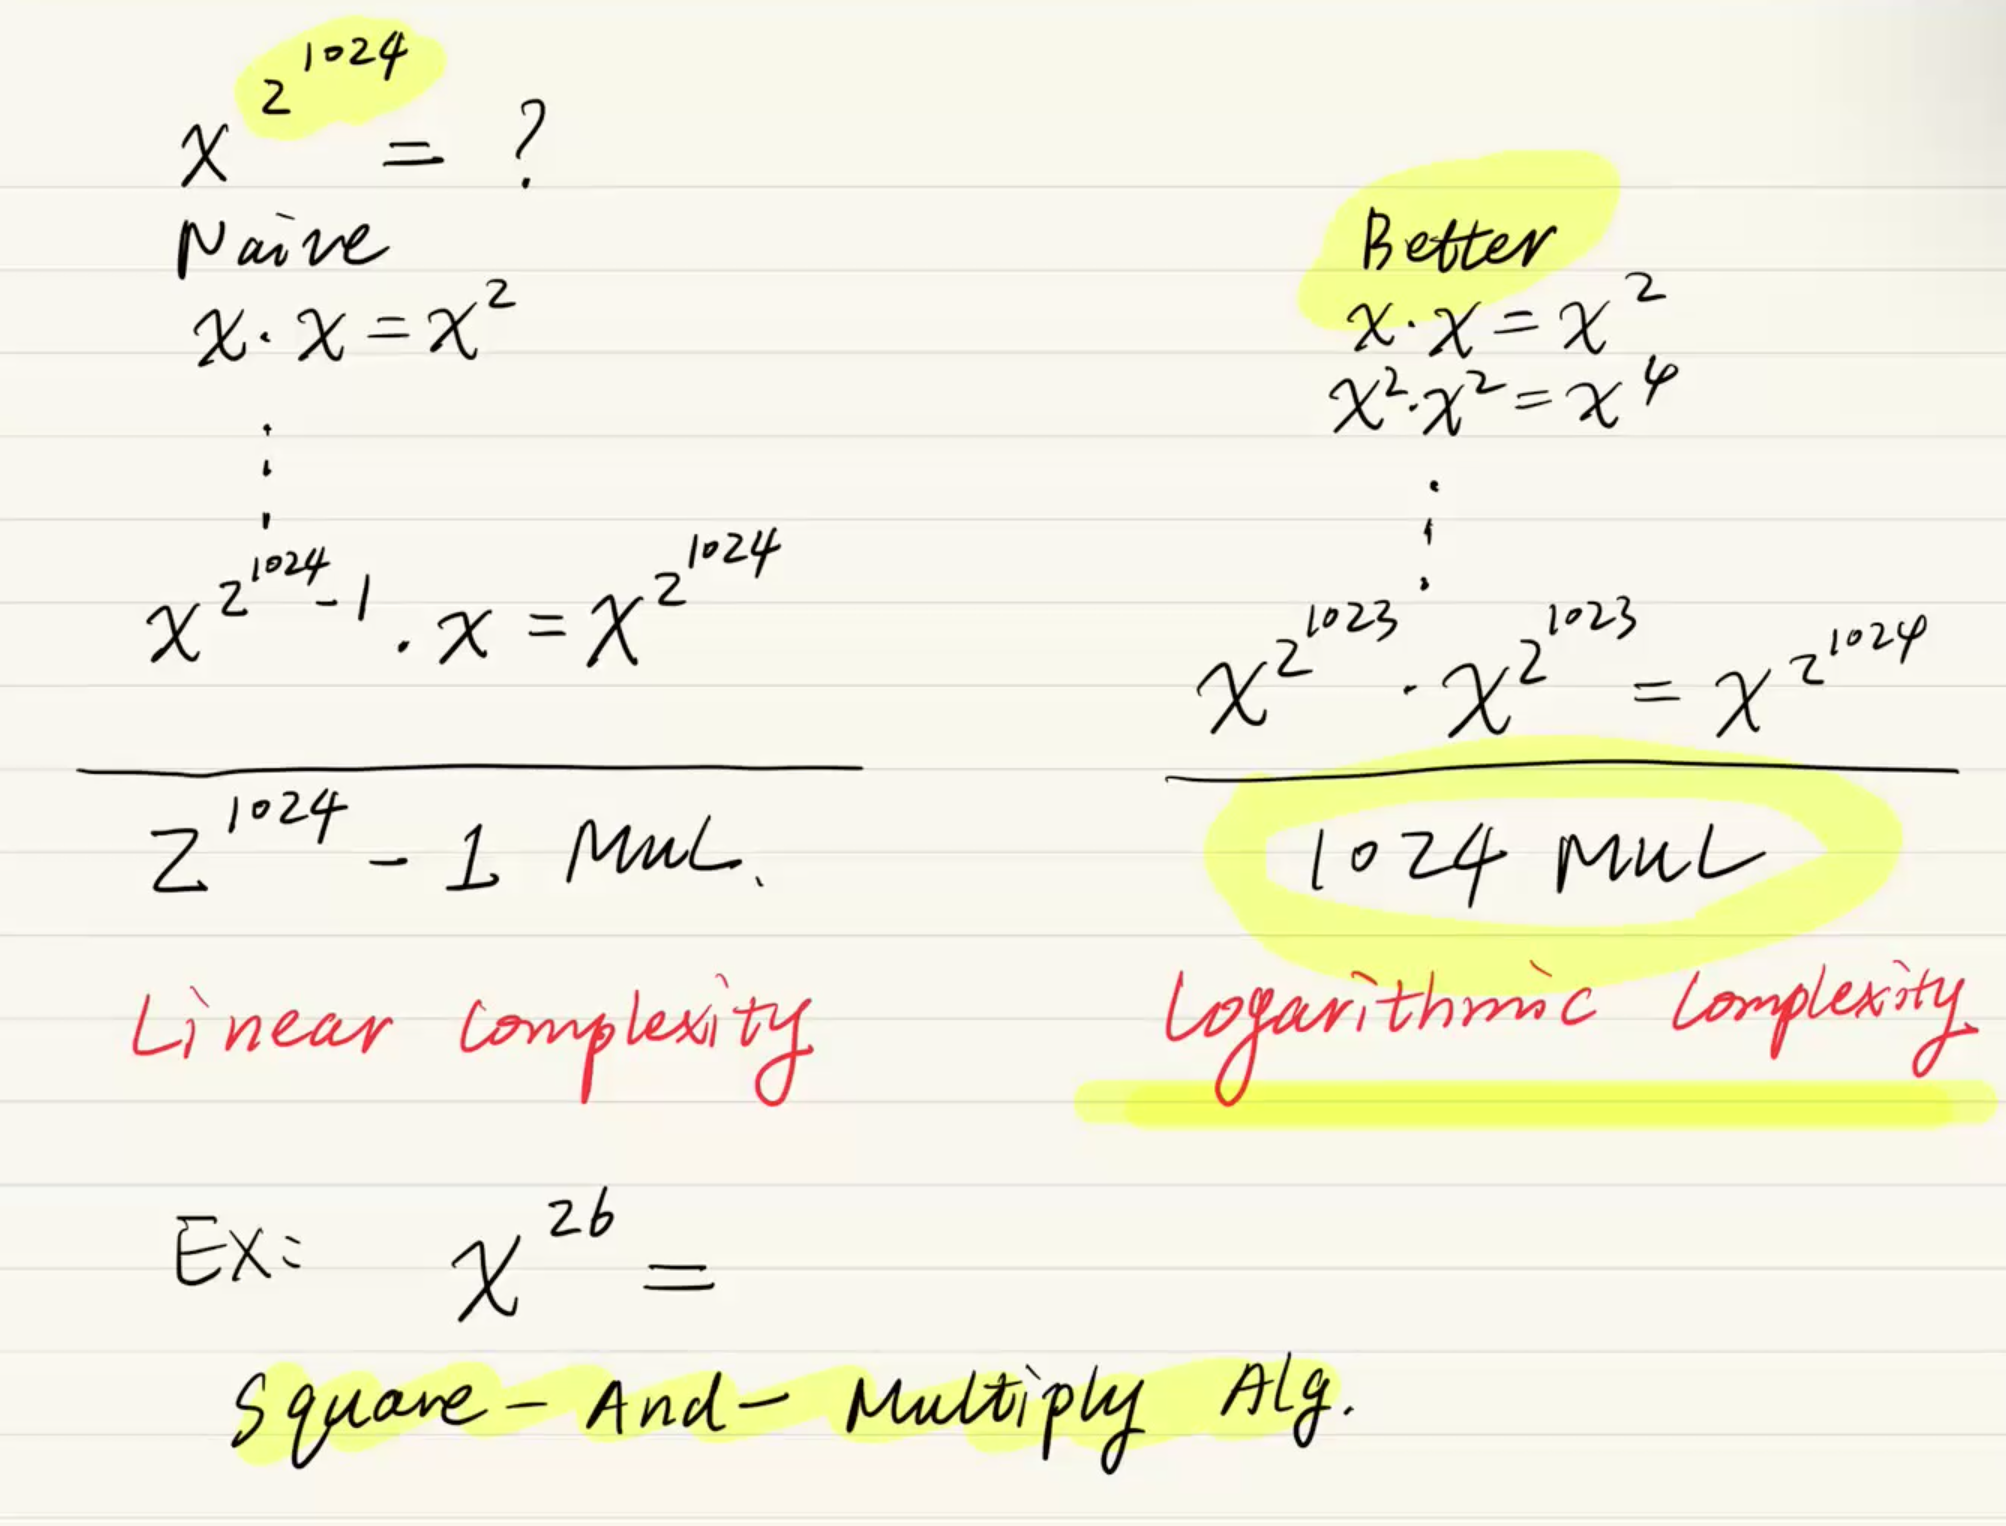 x^{2^{1024}} = ?
Naive
x · x = x^2
⋮
x^{2^{1024}-1} · x = x^{2^{1024}}
2^{1024} - 1 MUL.
Linear Complexity
Better
x · x = x^2
x^2 · x^2 = x^4
⋮
x^{2^{1023}} · x^{2^{1023}} = x^{2^{1024}}
1024 MUL
Logarithmic Complexity
Ex: x^{26} =
Square-And-Multiply Alg.